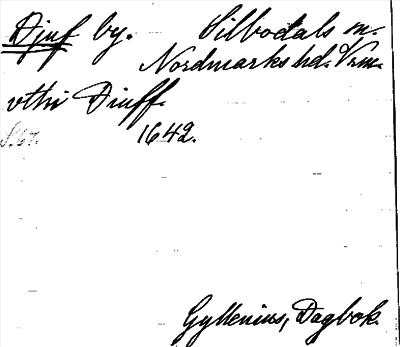 Djuf by. Silbodals sn.
Nordmarks hd. Vrm.
vthi Diuff.
S. 67. 1642.
Gyllenius, Dagbok.